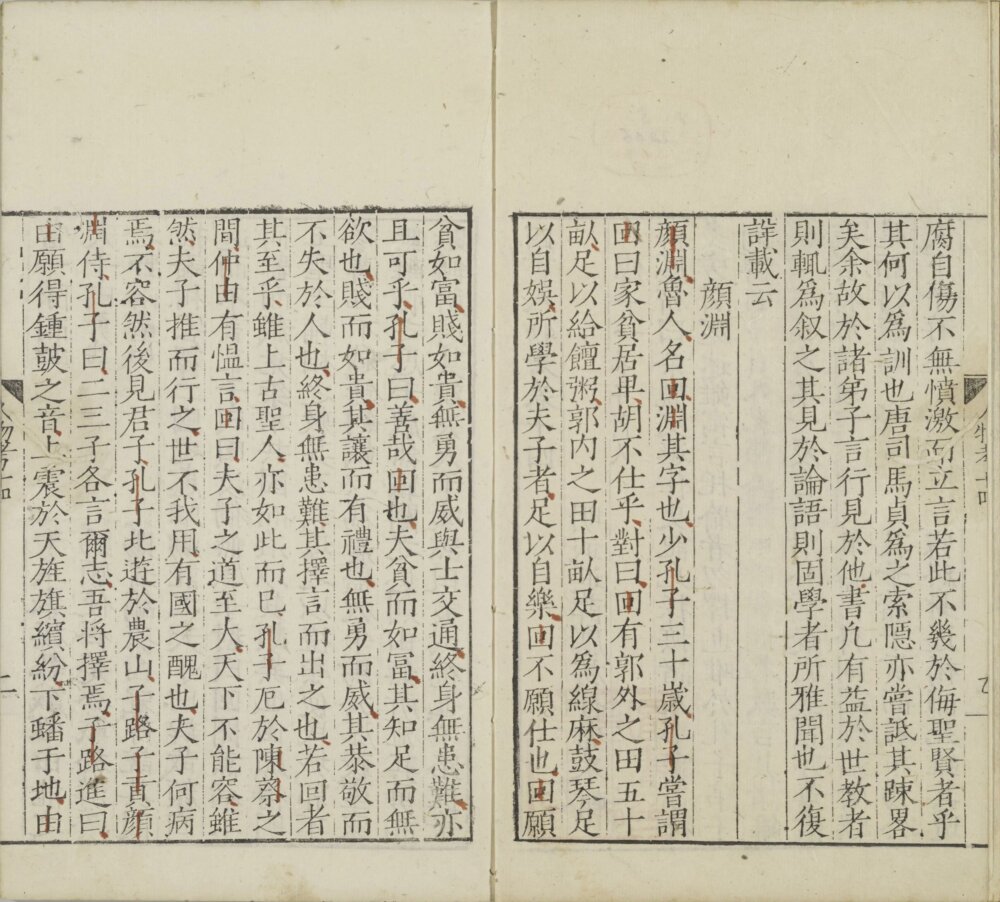 腐自傷不無憤激而立言若此不幾於侮聖賢者乎
其何以為訓也唐司馬貞為之索隱亦嘗詆其踈畧
矣余故於諸弟子言行見於他書凢有益於世教者
則輒為叙之其見於論語則固學者所雅聞也不復
詳載云
顔淵
顔淵魯人名回淵其字也少孔子三十歲孔子嘗謂
回曰家貧居卑胡不仕乎對曰回有郭外之田五十
畝足以給饘粥郭内之田十畝足以為線麻鼓琴足
以自娛所學於夫子者足以自樂回不願仕也回願
貧如富賤如貴無勇而威與士交通終身無患難亦
且可乎孔子曰善哉回也夫貧而如富其知足而無
欲也賤而如貴其讓而有禮也無勇而威其恭敬而
不失於人也終身無患難其擇言而出之也若回者
其至乎雖上古聖人亦如此而已孔子厄於陳蔡之
間仲由有慍言回曰夫子之道至大天下不能容雖
然夫子推而行之世不我用有國之醜也夫子何病
焉不容然後見君子孔子北遊於農山子路子貢顔
淵侍孔子曰二三子各言爾志吾将擇焉子路進曰
由願得鍾皷之音上震於天旌旗繽紛下蟠于地由